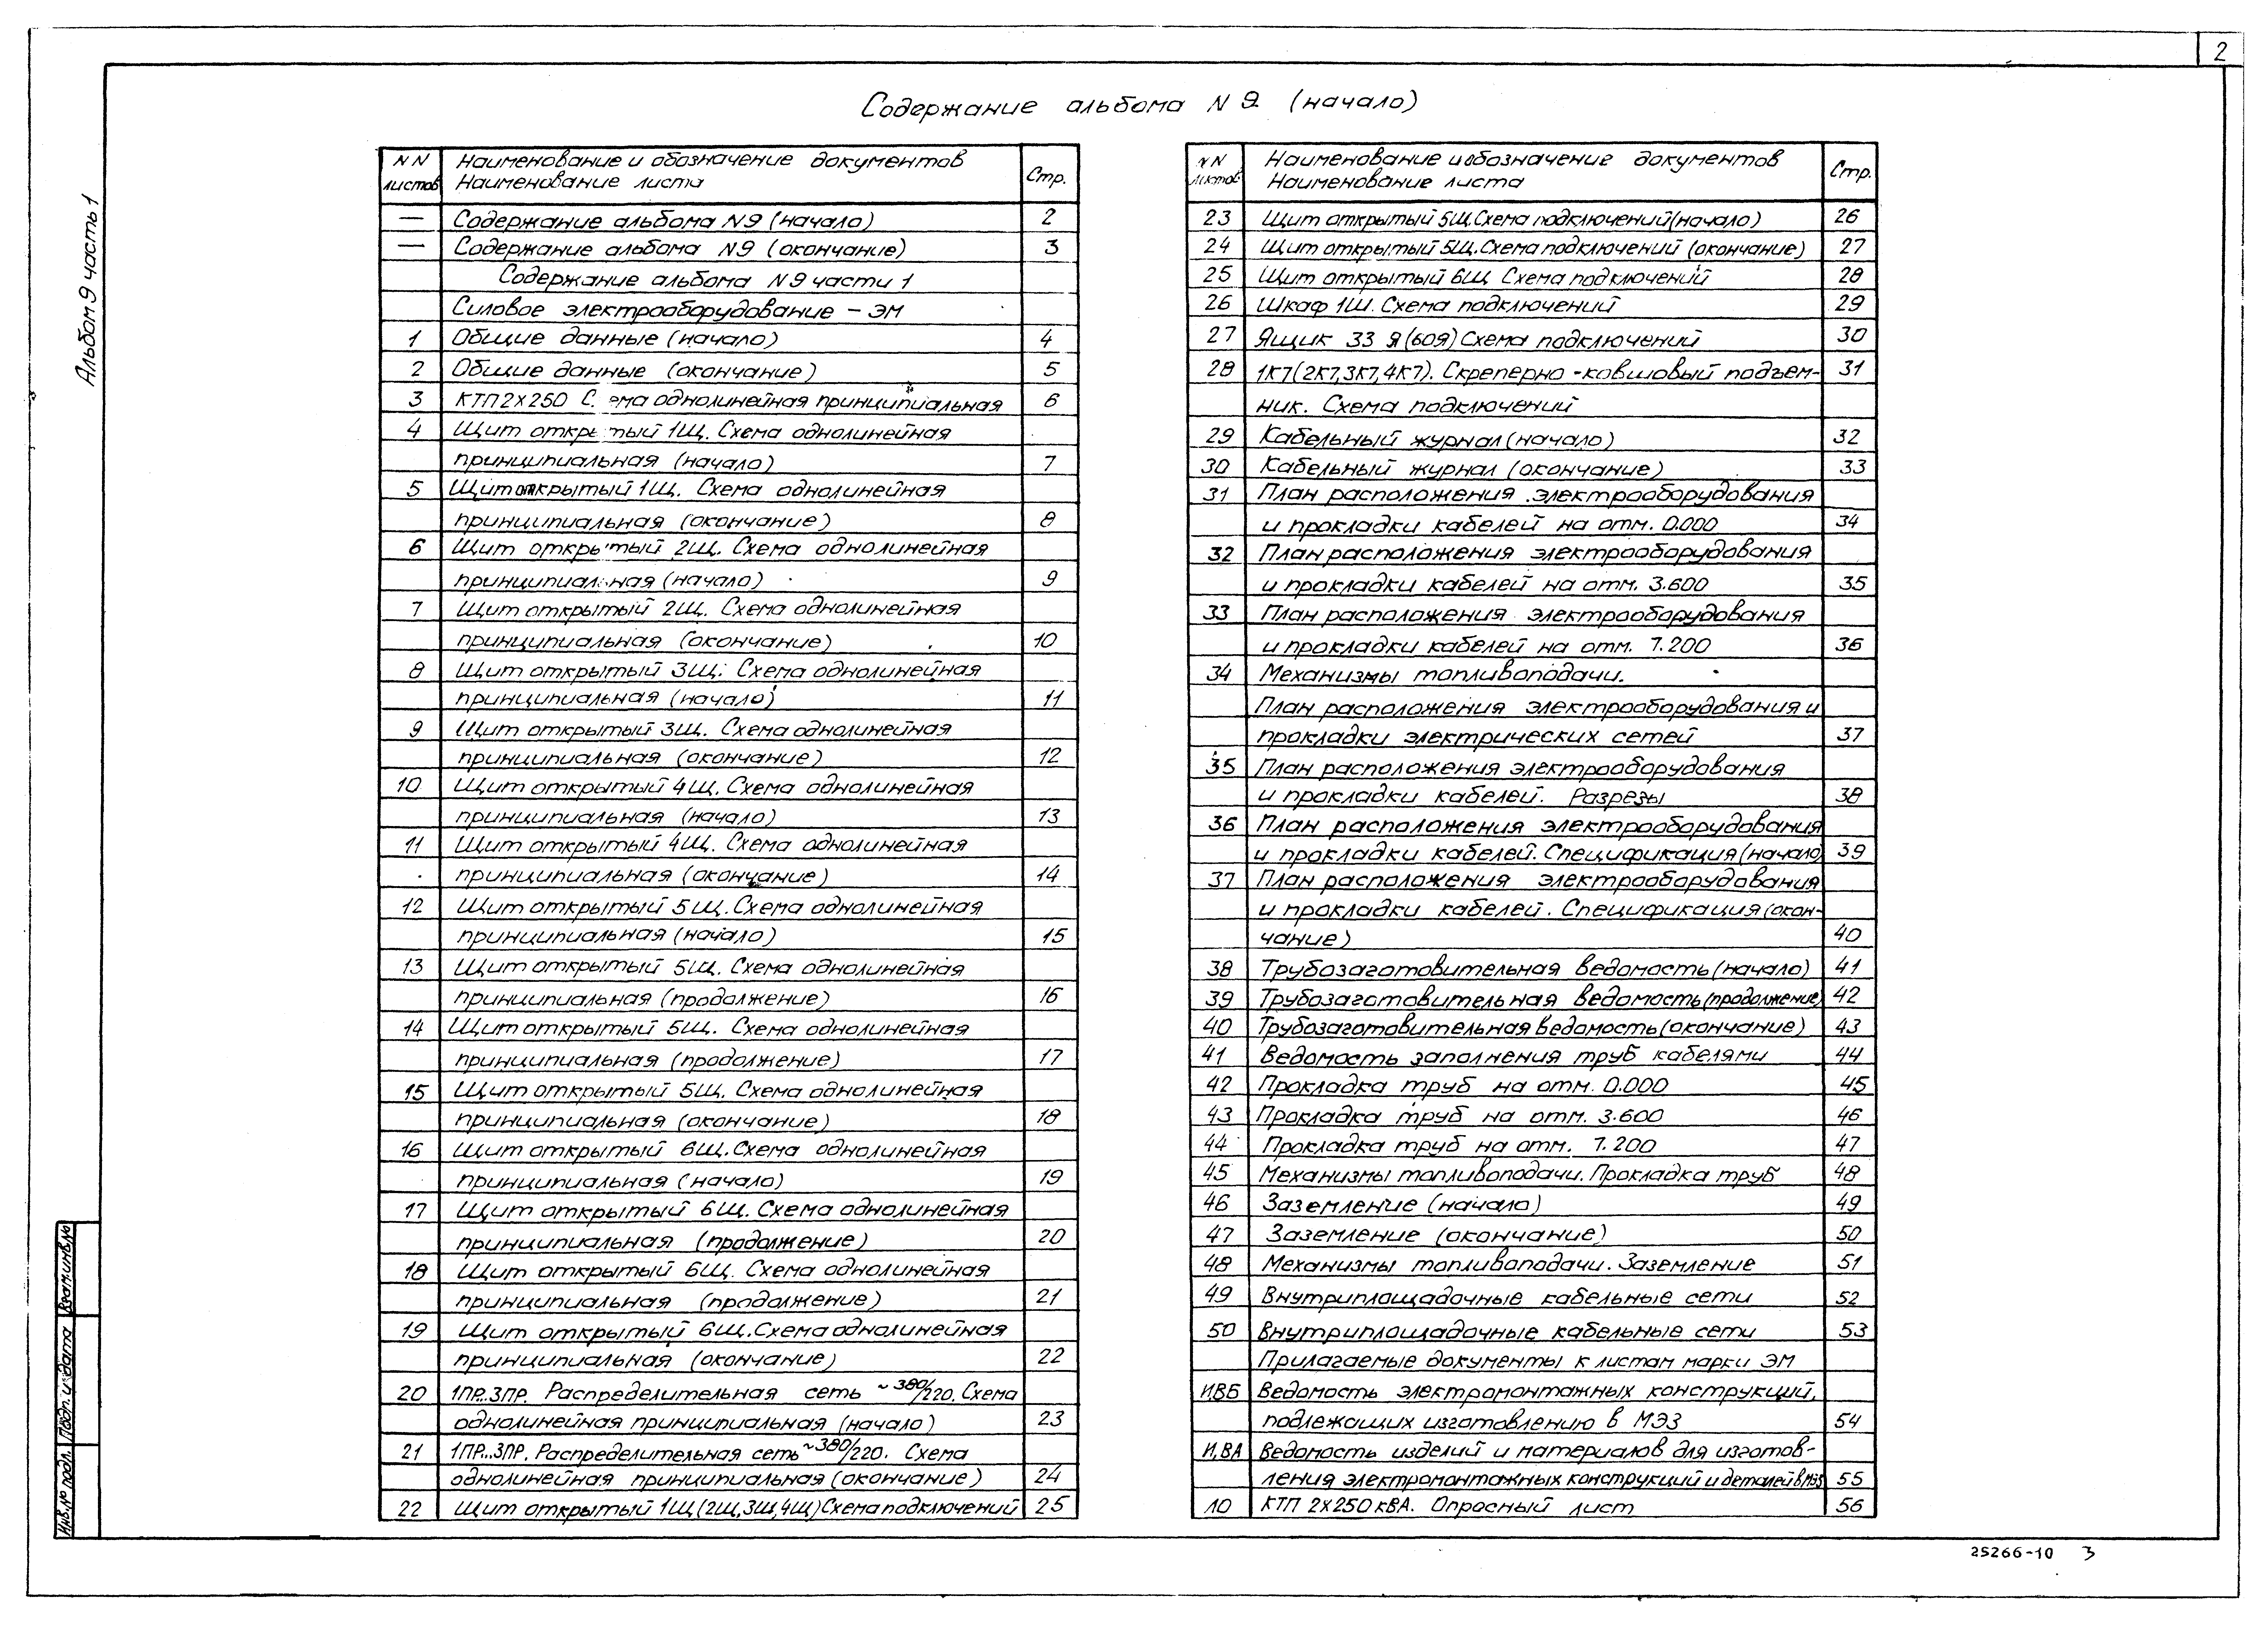 2
Содержание альбома N 9 (начало)
Альбом 9 часть 1
NN листов Наименование и обозначение документов Наименование листа Стр.
— Содержание альбома N9 (начало) 2
— Содержание альбома N9 (окончание) 3
Содержание альбома N9 части 1
Силовое электрооборудование – ЭМ
1 Общие данные (начало) 4
2 Общие данные (окончание) 5
3 КТП 2х250 Схема однолинейная принципиальная 6
4 Щит открытый 1Щ. Схема однолинейная
принципиальная (начало) 7
5 Щит открытый 1Щ. Схема однолинейная
принципиальная (окончание) 8
6 Щит открытый 2Щ. Схема однолинейная
принципиальная (начало) 9
7 Щит открытый 2Щ. Схема однолинейная
принципиальная (окончание) 10
8 Щит открытый 3Щ. Схема однолинейная
принципиальная (начало) 11
9 Щит открытый 3Щ. Схема однолинейная
принципиальная (окончание) 12
10 Щит открытый 4Щ. Схема однолинейная
принципиальная (начало) 13
11 Щит открытый 4Щ. Схема однолинейная
принципиальная (окончание) 14
12 Щит открытый 5Щ. Схема однолинейная
принципиальная (начало) 15
13 Щит открытый 5Щ. Схема однолинейная
принципиальная (продолжение) 16
14 Щит открытый 5Щ. Схема однолинейная
принципиальная (продолжение) 17
15 Щит открытый 5Щ. Схема однолинейная
принципиальная (окончание) 18
16 Щит открытый 6Щ. Схема однолинейная
принципиальная (начало) 19
17 Щит открытый 6Щ. Схема однолинейная
принципиальная (продолжение) 20
18 Щит открытый 6Щ. Схема однолинейная
принципиальная (продолжение) 21
19 Щит открытый 6Щ. Схема однолинейная
принципиальная (окончание) 22
20 1ПР...3ПР. Распределительная сеть ~380/220. Схема
однолинейная принципиальная (начало) 23
21 1ПР...3ПР. Распределительная сеть ~380/220. Схема
однолинейная принципиальная (окончание) 24
22 Щит открытый 1Щ (2Щ, 3Щ, 4Щ) Схема подключений 25
NN листов Наименование и обозначение документов Наименование листа Стр.
23 Щит открытый 5Щ. Схема подключений (начало) 26
24 Щит открытый 5Щ. Схема подключений (окончание) 27
25 Щит открытый 6Щ Схема подключений 28
26 Шкаф 1Ш. Схема подключений 29
27 Ящик 33 Я (60Я) Схема подключений 30
28 1К7 (2К7, 3К7, 4К7). Скреперно-ковшовый подъем- 31
ник. Схема подключений
29 Кабельный журнал (начало) 32
30 Кабельный журнал (окончание) 33
31 План расположения электрооборудования
и прокладки кабелей на отм. 0.000 34
32 План расположения электрооборудования
и прокладки кабелей на отм. 3.600 35
33 План расположения электрооборудования
и прокладки кабелей на отм. 7.200 36
34 Механизмы топливоподачи.
План расположения электрооборудования и
прокладки электрических сетей 37
35 План расположения электрооборудования
и прокладки кабелей. Разрезы 38
36 План расположения электрооборудования
и прокладки кабелей. Спецификация (начало) 39
37 План расположения электрооборудования
и прокладки кабелей. Спецификация (окон-
чание) 40
38 Трубозаготовительная ведомость (начало) 41
39 Трубозаготовительная ведомость (продолжение) 42
40 Трубозаготовительная ведомость (окончание) 43
41 Ведомость заполнения труб кабелями 44
42 Прокладка труб на отм. 0.000 45
43 Прокладка труб на отм. 3.600 46
44 Прокладка труб на отм. 7.200 47
45 Механизмы топливоподачи. Прокладка труб 48
46 Заземление (начало) 49
47 Заземление (окончание) 50
48 Механизмы топливоподачи. Заземление 51
49 Внутриплощадочные кабельные сети 52
50 Внутриплощадочные кабельные сети 53
Прилагаемые документы к листам марки ЭМ
И.ВБ Ведомость электромонтажных конструкций,
подлежащих изготовлению в МЭЗ 54
И.ВА Ведомость изделий и материалов для изготов-
ления электромонтажных конструкций и деталей в МЭЗ 55
10 КТП 2х250 кВА. Опросный лист 56
Инв.№ подл. Подп. и дата Взам.инв.№
25266-10 3